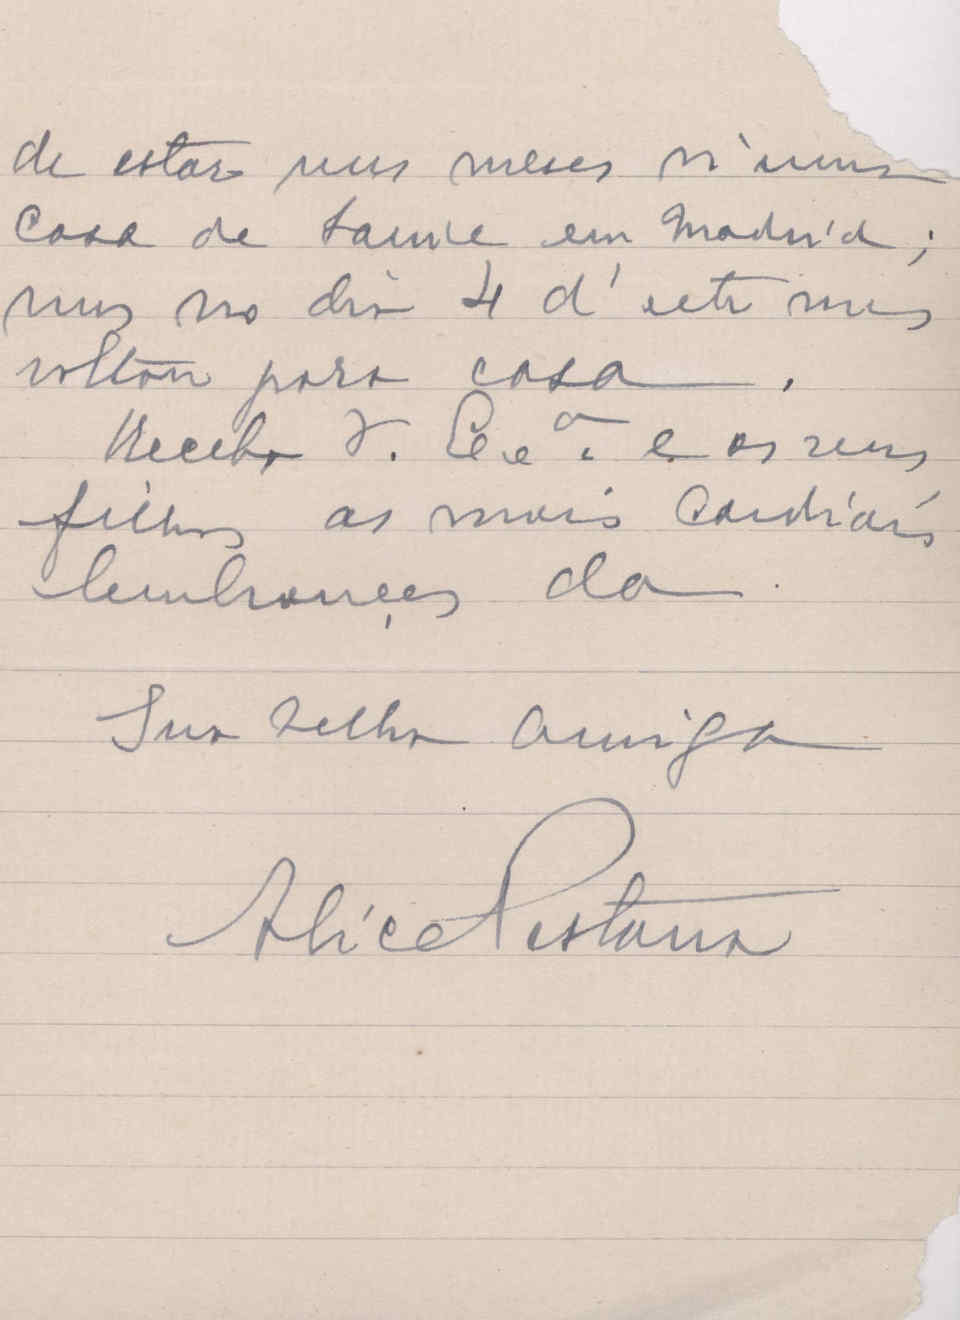 de estar uns meses n'uma
Casa de Saude em Madrid;
mas no dia 4 d'este mes
voltou para casa.
Receba V. Exª. e os seus
filhos as mais Cordiais
lembranças da
Sua velha amiga
Alice Pestana